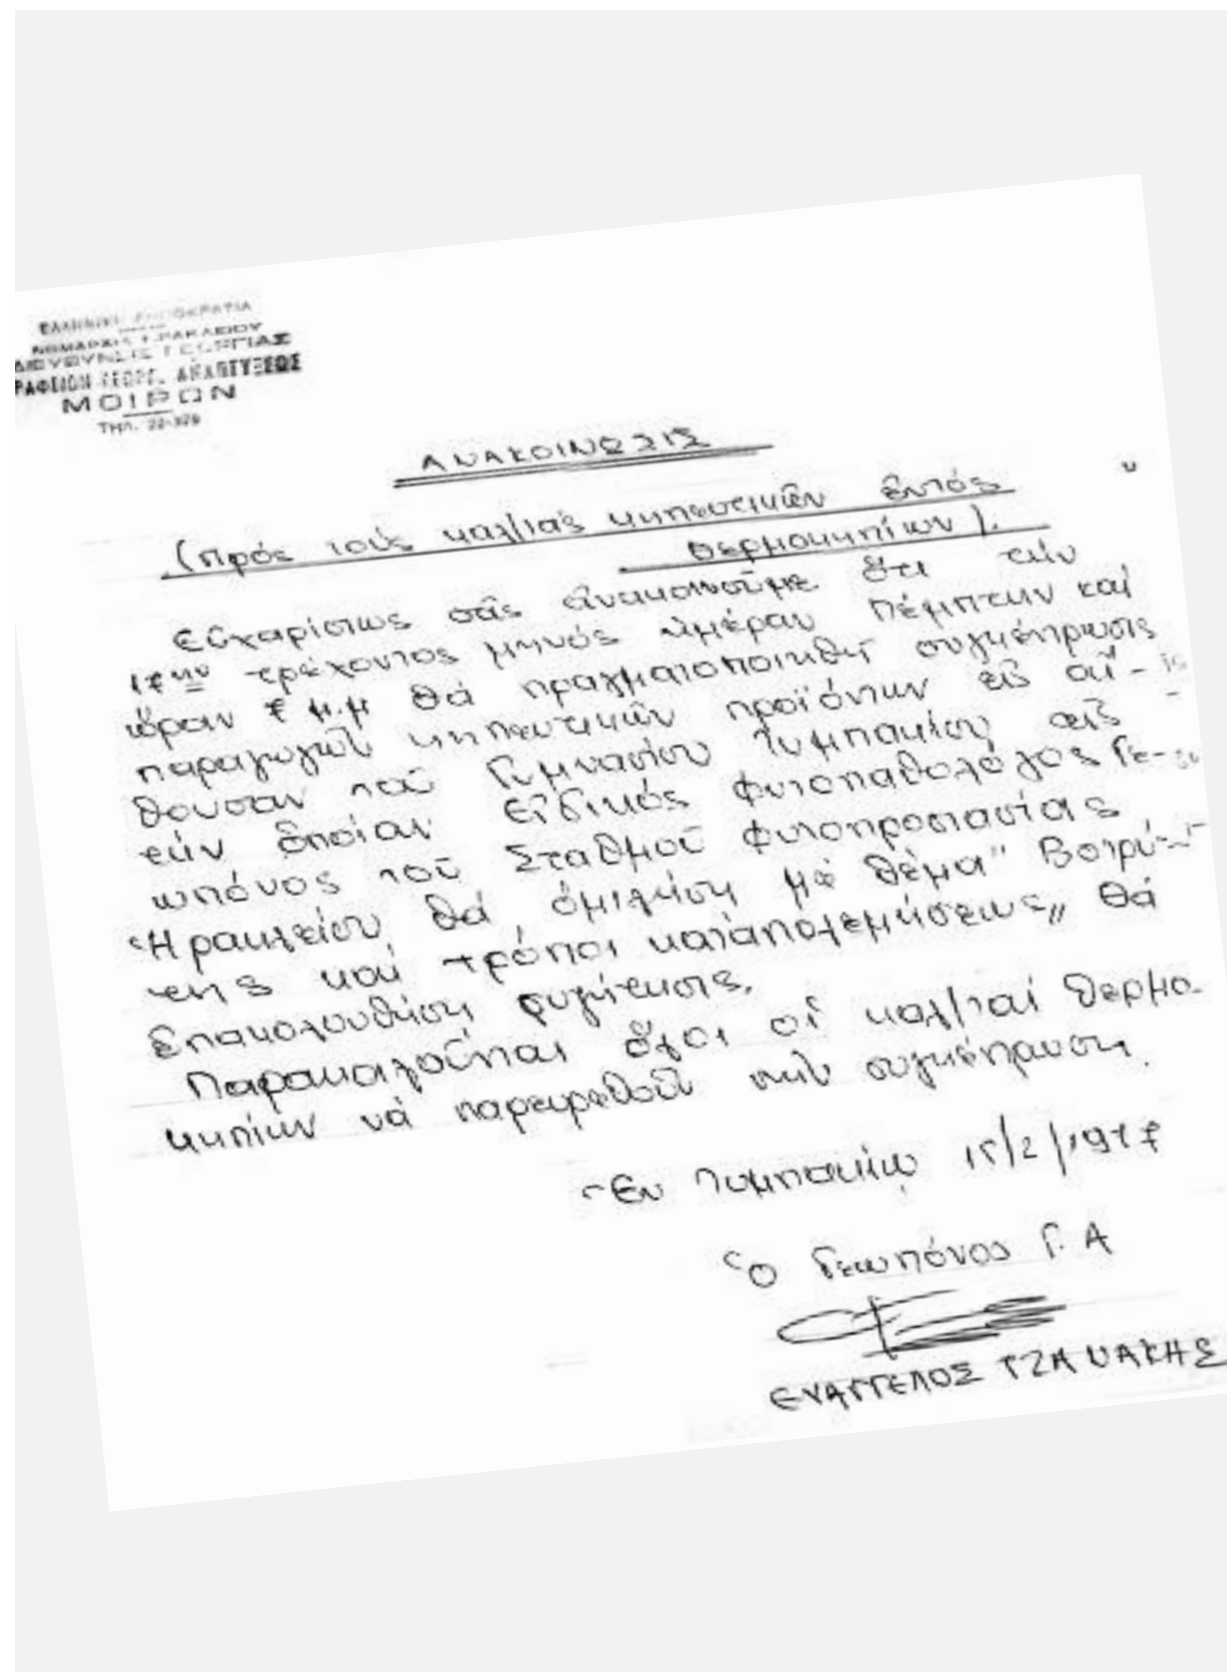 ΕΛΛΗΝΙΚΗ ΔΗΜΟΚΡΑΤΙΑ
ΝΟΜΑΡΧΙΑ ΗΡΑΚΛΕΙΟΥ
ΔΙΕΥΘΥΝΣΙΣ ΓΕΩΡΓΙΑΣ
ΡΑΦΕΙΟΝ ΓΕΩΡΓ. ΑΝΑΠΤΥΞΕΩΣ
ΜΟΙΡΩΝ
Τηλ. 22-329
ΑΝΑΚΟΙΝΩΣΙΣ
(Πρός τούς καλ/τάς κηπευτικῶν ἐντός
θερμοκηπίων).
Εὐχαρίστως σᾶς ἀνακοινοῦμε ὅτι τήν
17ην τρέχοντος μηνός ἡμέραν Πέμπτην καί
ὥραν 7 μ.μ θά πραγματοποιηθῆ συγκέντρωσις
παραγωγῶν κηπευτικῶν προϊόντων εἰς αἴ-
θουσαν τοῦ Γυμνασίου Τυμπακίου εἰς
τήν ὁποίαν εἰδικός φυτοπαθολόγος Γε-
ωπόνος τοῦ Σταθμοῦ Φυτοπροστασίας
Ἡρακλείου θά ὁμιλήση μέ θέμα "Βοτρύ-
της καί τρόποι καταπολεμήσεως,, θά
ἐπακολουθήση συζήτησις.
Παρακαλοῦνται ὅλοι οἱ καλ/ταί θερμο-
κηπίων νά παρευρεθοῦν στήν συγκέντρωση.
Ἐν Τυμπακίῳ 15/2/1977
Ὁ Γεωπόνος Γ.Α
ΕΥΑΓΓΕΛΟΣ ΤΖΑΝΑΚΗΣ